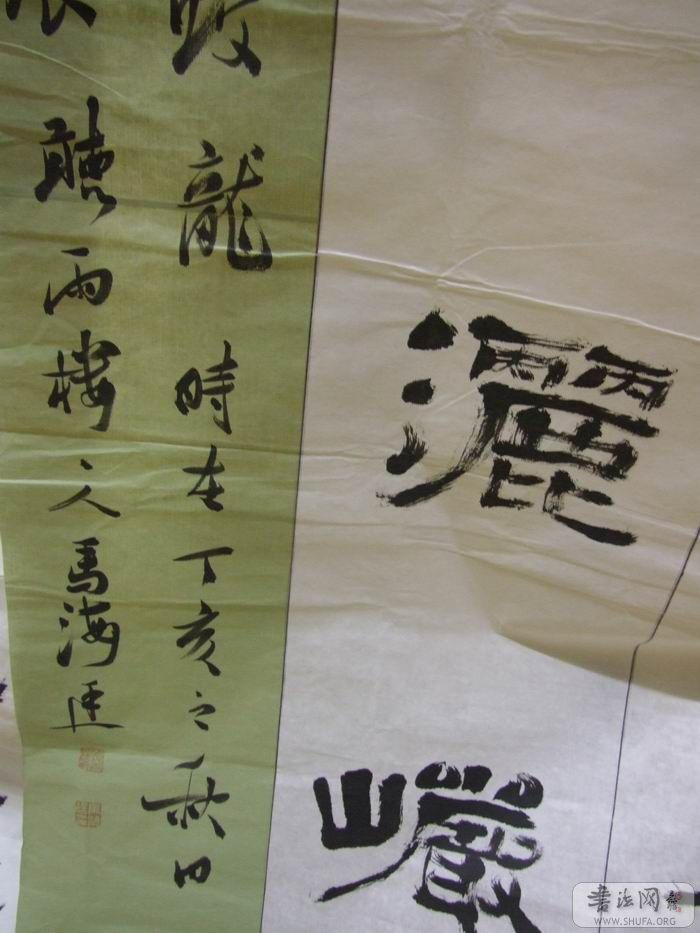 灑
巖
龍 時在丁亥之秋日
聽雨樓主人馬海廷
書法网
WWW.SHUFA.ORG